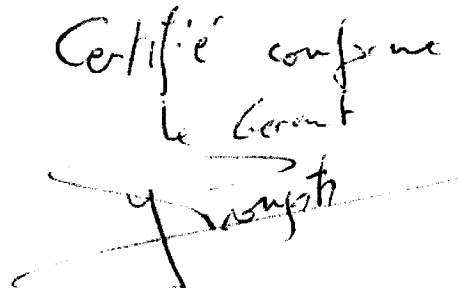 Certifié conforme
le Gerant